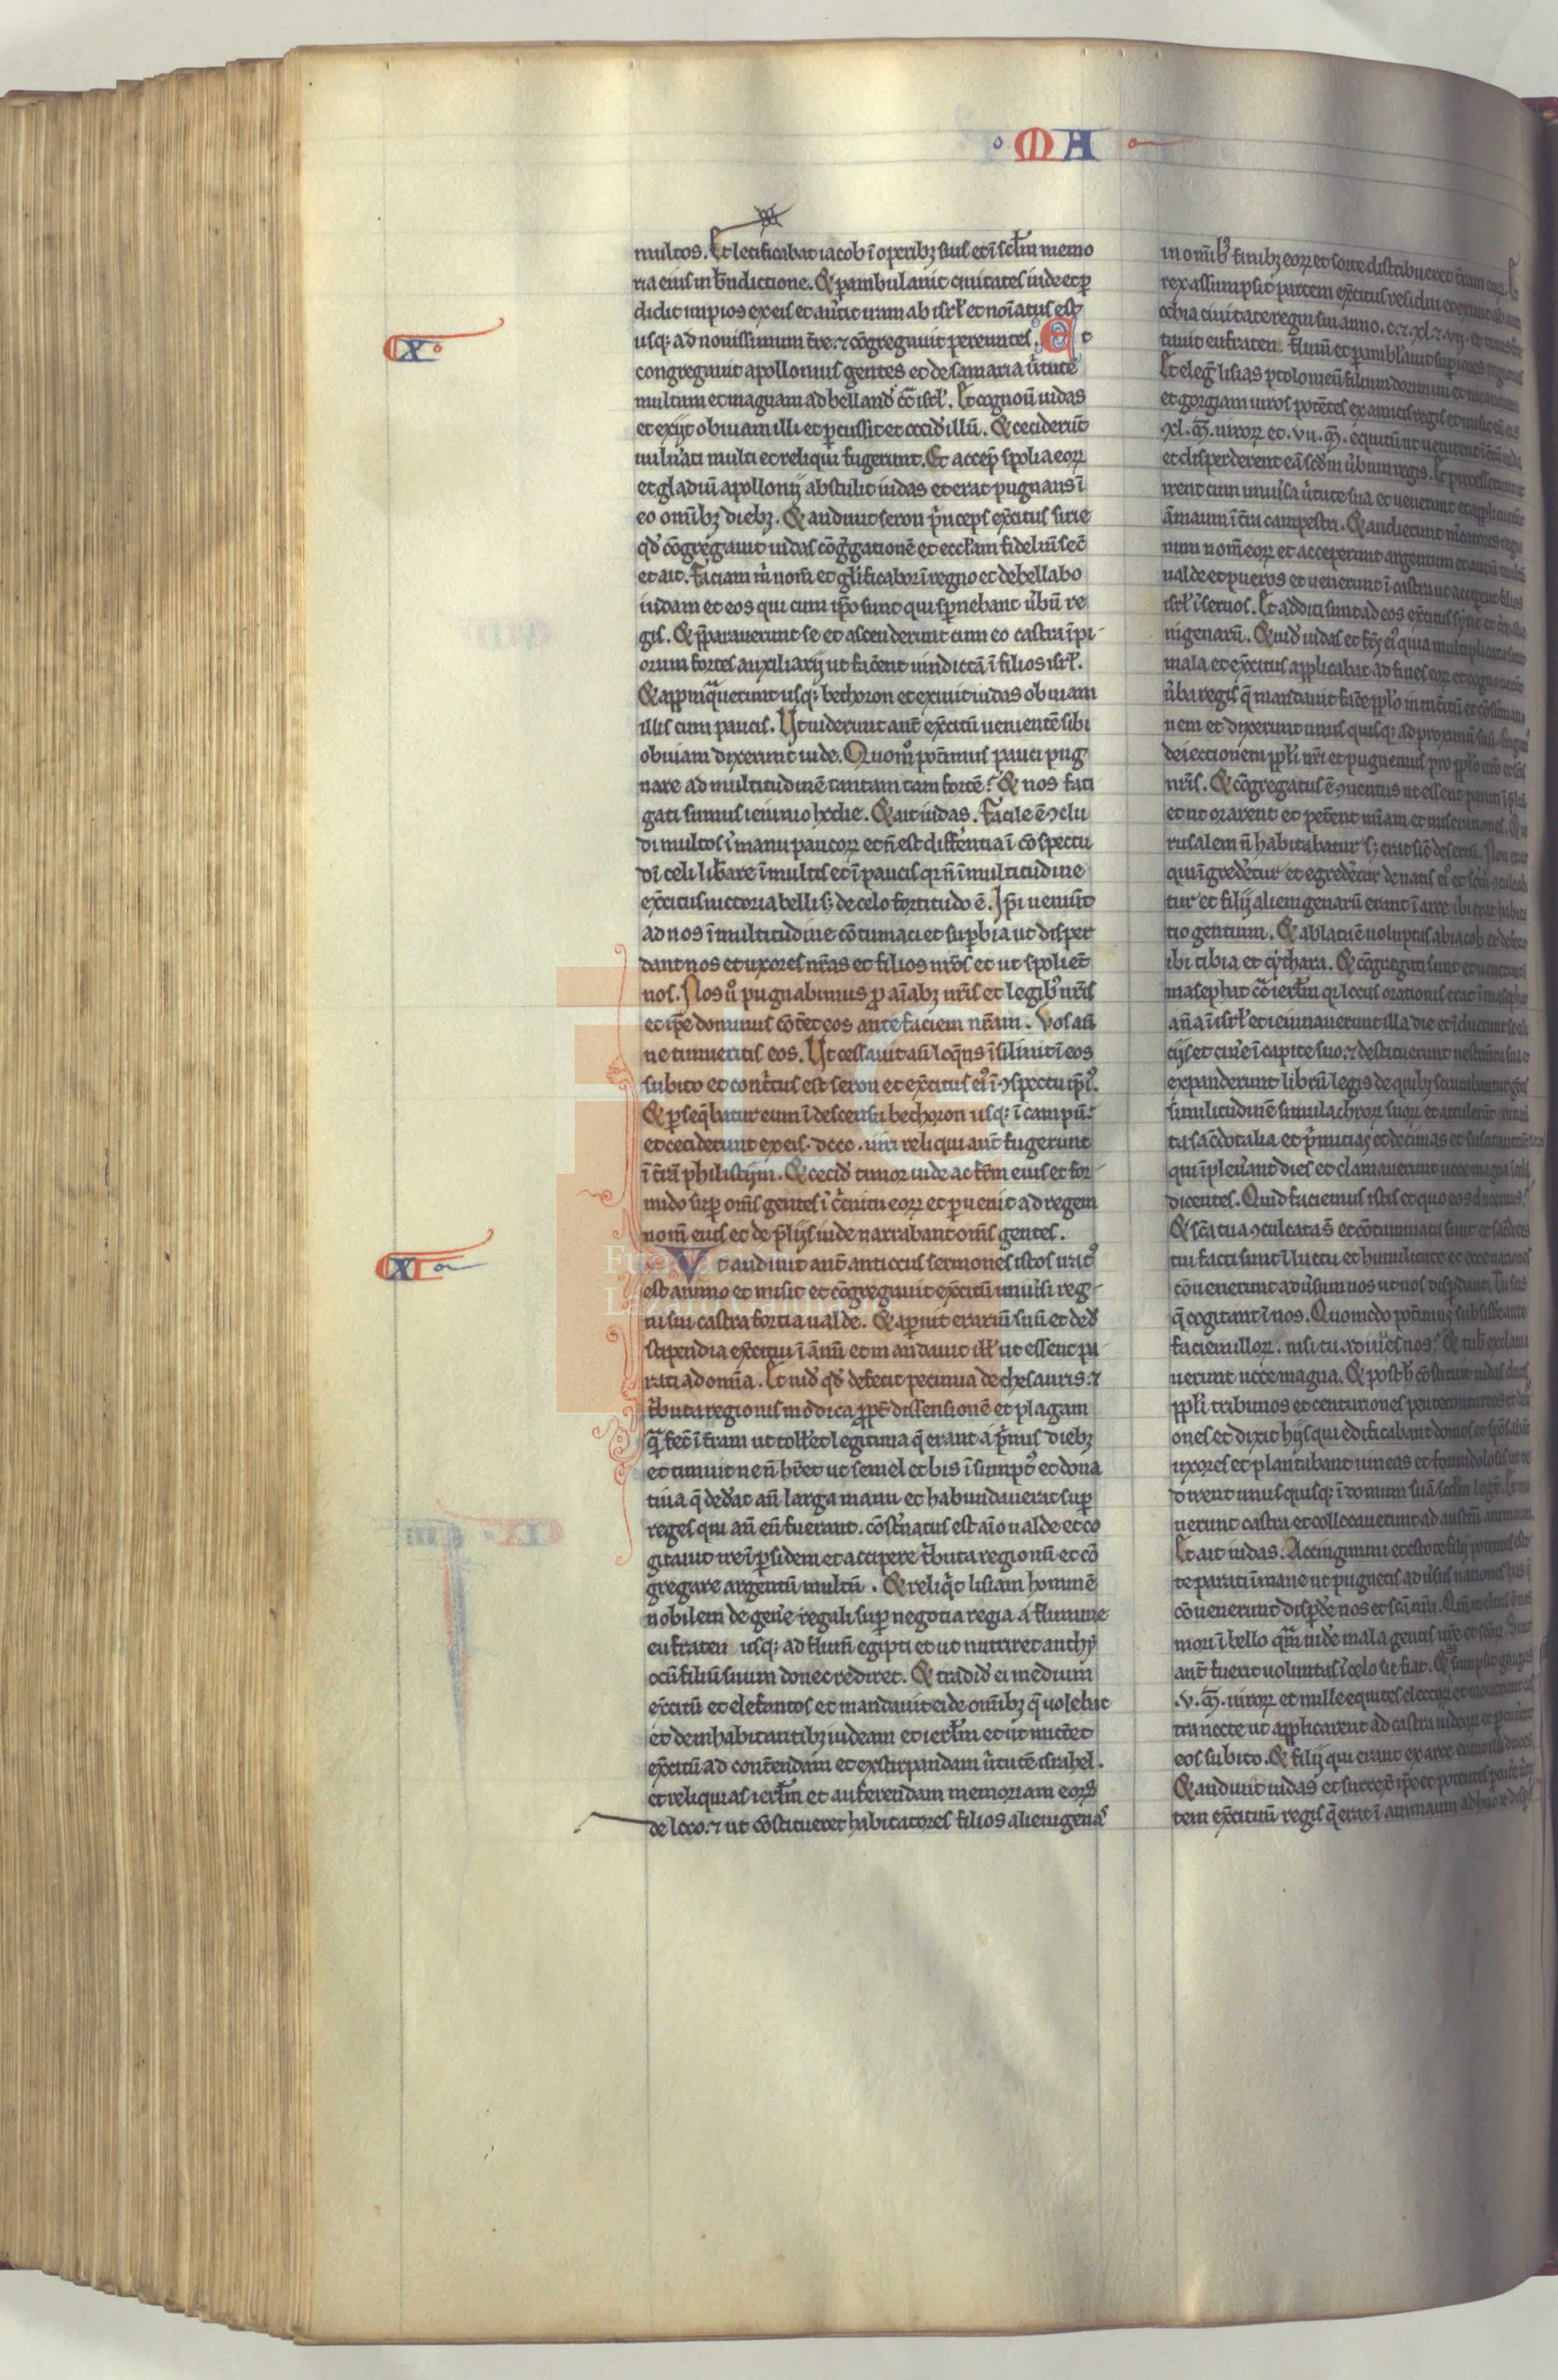 MA
X
XI
multos. Et letificabat iacob ī operibꝫ suis et ī sc̄lm memo
ria eius in bn̄dictione. Et ꝑambulauit ciuitates iude et ꝑ
didit impios ex eis et au̾tit iram ab isrl̄ et noīatus est
usqꝫ ad nouissimum tr̄e. ⁊ cōgregauit pereuntes. Et
congregauit apollonius gentes et de samaria u̾tutē
multam et magnam ad bellandˀ cōt̾ isrl̄. Et cognouˀ iudas
et exijt obuiam illi et ꝑcussit et occidˀ illū. Et ceciderūt
uulnˀati multi et reliqui fugerunt. Et accep̄ spolia eoꝝ
et gladiū apollonij abstulit iudas et erat pugnans ī
eo om̄ibꝫ diebꝫ. Et audiuit seron p̄nceps ex̄citus sirie
qd̄ cōgregauit iudas cōg̾gationē et eccl̄am fideliū secū
et ait. Faciam m̄ nom̄ et gl̄ificabor ī regno et debellabo
iudam et eos qui cum ip̄o sunt qui sp̾nebant u̾bū re
gis. Et p̄parauerunt se et ascenderunt cum eo castra īpi
orum fortes auxiliarij ut fac̄ent uindictā ī filios isrl̄.
Et appinq̾uerunt usqꝫ bethoron et exiuit iudas obuiam
illis cum paucis. Ut uiderunt aut̄ ex̄citū uenientē sibi
obuiam dixerunt iude. Quomo̊ pot̄imus pauci pug
nare ad multitudinē tantam tam fortē? Et nos fati
gati sumus ieiunio hodie. Et ait iudas. Facile ē ꝯclu
di multos ī manu paucoꝝ et n̄ est diffr̄entia ī cōspectu
dī celi lib̄are ī multis et ī paucis qr̄ n̄ ī multitudine
ex̄citus uictoria belli sꝫ de celo fortitudo ē. Ip̄i ueniūt
ad nos ī multitudine cōtumaci et suꝑbia ut disper
dant nos et uxores nr̄as et filios nr̄os et ut spoliēt
nos. Nos u̾ pugnabimus ꝓ aīabꝫ nr̄is et legibꝰ nr̄is
et ip̄e dominus cōt̄et eos ante faciem nr̄am. Vos aū
ne timueritis eos. Ut cessauit aū loq̄ns īsiliuit ī eos
subito et cont̾tus est seron et ex̄citus eiꝰ ī ꝯspectu ip̄iꝰ.
Et ꝑseq̄batur eum ī descensu bethoron usqꝫ ī campū
et ceciderunt ex eis. dccc. uiri reliqui aut̄ fugerunt
ī tr̄ā philistijm. Et cecidˀ timor iude ac fr̄m eius et for
mido suꝑ om̄s gentes ī c̾cuitu eoꝝ et ꝑuenit ad regem
nom̄ eius et de p̄lijs iude narrabant om̄s gentes.
Vt audiuit aut̄ antiocus sermones istos iratꝰ
est animo et misit et cōgregauit ex̄citū uniu̾si reg
ni sui castra fortia ualde. Et aꝑuit erariū suū et dedˀ
stipendia ex̄citui ī annū et mandauit ill̄ ut essent pa
rati ad omīa. Et uidˀ qd̄ defecit pecunia de thesauris. ⁊
t̾buta regionis modica ꝓpt̄ dissensionē et plagam
q̾ fec̄ ī tr̄am ut toll̄et legitima q̄ erant a p̾mis diebꝫ
et timuit ne n̄ hr̄et ut semel et bis ī sumptꝰ et dona
tiua q̄ dedˀat aū larga manu et habundauerat suꝑ
reges qui aū eū fuerant. cōst̾natus est aīo ualde et co
gitauit ire ī ꝑsidem et accipere t̾buta regionū et cō
gregare argentū multū. Et reliq̾t lisiam hominē
nobilem de gen̄e regali suꝑ negotia regia a flumine
eufraten usqꝫ ad flum̄ egipti et ut nutriret anthy
ocū filiū suum donec rediret. Et tradidˀ ei medium
ex̄citū et elefantos et mandauit ei de om̄ibꝫ q̄ uolebat
et de inhabitantibꝫ iudeam et ierlm̄ et ut mitt̄et
ex̄citū ad cont̄endam et exstirpandam u̾tutē israhel.
et reliquias ierlm̄ et auferendam memoriam eoꝝ
de loco. ⁊ ut cōstitueret habitatores filios alienigenas
in om̄ibꝰ finibꝫ eoꝝ et sorte distribueret tr̄am eoꝝ. Et
rex assumpsit partem ex̄citus residui et exiuit ab anti
ochia ciuitate regni sui anno. c. ⁊. xl. ⁊. vij. et
tauit eufraten. flum̄ et ꝑambl̄auit suꝑiores regiones
Et eleḡ lisias ptolomeū filium dorimini et nicanorem
et gorgiam uiros potētes ex amicis regis et misit cū eis
xl. m̄. uiroꝝ et. vii. m̄. equitū ut uenirent ī tr̄ā iuda
et disperderent eā scd̄m u̾bum regis. Et processerunt ut
irent cum uniu̾sa u̾tute sua et uenerunt et applicuerūt
āmaum ī tr̄a campestri. Et audierunt m̾catores regio
num nom̄ eoꝝ et acceperunt argentum et aurū multū
ualde et pueros et uenerunt ī castra ut acciperent filios
isrl̄ ī seruos. Et additi sunt ad eos ex̄citus syrie et tr̄e alie
nigenarū. Et uidˀ iudas et fr̄s eiꝰ quia multiplicata sunt
mala et ex̄citus applicabat ad fines eoꝝ et cognouerūt
u̾ba regis q̄ mandauit fac̄e ppl̄o in int̾itū et cōsūmatio
nem et dixerunt unusquisqꝫ ad proximū suū. Erigamꝰ
deiectionem ppl̄i nr̄i et pugnemus pro ppl̄o nr̄o et scīs
nr̄is. Et cōgregatus ē ꝯuentus ut essent parati ī p̄liū
et ut orarent et pet̄ent mīam et miserationes. Et ie
rusalem n̄ habitabatur sꝫ erat sic̄ desertū. Non erat
qui īgred̄etur et egred̄etur de natis eiꝰ et scm̄ ꝯculcaba
tur et filij alienigenarū erant ī arce ibi erat habita
tio gentium. Et ablata ē uoluptas ab iacob et defecit
ibi tibia et cythara. Et cōgregati sunt et uenerunt
masephat cōt̾ ierlm̄ qr̄ locus orationis erat ī masephat
aū a ī isrl̄ et ieiunauerunt illa die et īduerunt se cili
cijs et cin̄e ī capite suo. ⁊ destituerunt uestim̄ta sua et
expanderunt librū legis de quibꝫ scrutabantur gētes
similitudinē simulachroꝝ suoꝝ et attulerūt
ta sac̄dotalia et p̾mitias et decimas et suscitauerūt
qui īpleu̾ant dies et clamauerunt uoce magna ī celū
dicentes. Quid faciemus istis et quo eos ducemus?
Et scā tua ꝯculcata sˉ et cōtaminata sunt et sac̄dotes
tui facti sunt ī luctu et humilitate et ecce nationes
cōuenerunt adu̾sum nos ut nos disꝑdant. Tu scis
q̄ cogitant ī nos. Quomodo pot̄imus subsist̄e ante
faciem illoꝝ. nisi tu adiuues nos? Et tub̾ exclama
uerunt uoce magna. Et post h̄ cōstituit iudas duces
ppl̄i tribunos et centuriones pentecontarcos et decuri
ones et dixit hijs qui edificabant domos et sponsabāt
uxores et plantabant uineas et formidolosis ut re
dirent unusquisqꝫ ī domum suā scd̄m legē. Et mo
uerunt castra et collocauerunt ad austrū ammaum.
Et ait iudas. Accingimini et estote filij potentes et es
te parati ī mane ut pugnetis adu̾sus nationes has q̄
cōuenerunt disꝑd̄e nos et scā nr̄a. Qm̄ melius ē nos
mori ī bello q̾m uid̄e mala gentis nr̄e et scōꝝ. Sicut
aut̄ fuerit uoluntas ī celo sic fiat. Et assumpsit gorgias
.v. m̄. uiroꝝ et mille equites electoꝝ et mouerunt cas
tra nocte ut applicarent ad castra iudeoꝝ et ꝑcut̄ent
eos subito. Et filij qui erant ex arce erant illi duces.
Et audiuit iudas et surrex̄ ip̄e et potentes ꝑcut̄e u̾tu
tem ex̄cituū regis q̄ erat ī ammaum adhuc ē disꝑ